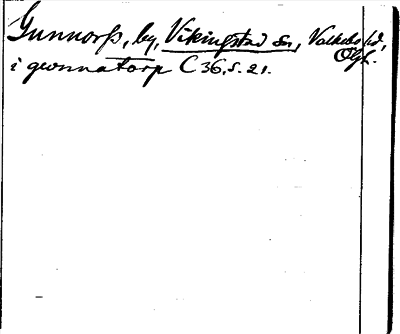 Gunnorp, by, Vikingstad sn, Valkebo hd,
Ögl.
i gwnnatorp C 36, s. 21.